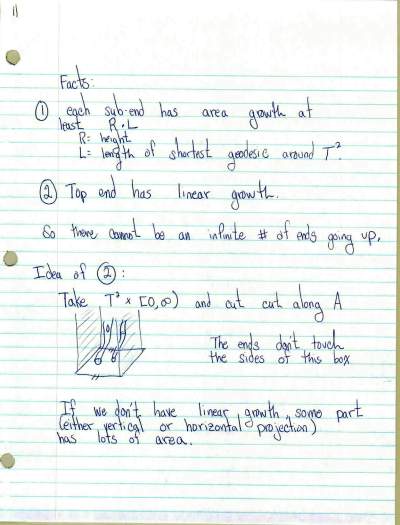 11
Facts:
① each sub-end has area growth at
least R·L
R = height
L = length of shortest geodesic around T².
② Top end has linear growth.
So there cannot be an infinite # of ends going up.
Idea of ②:
Take T² × [0,∞) and cut cut along A
The ends don't touch
the sides of this box
If we don't have linear growth, some part
(either vertical or horizontal projection)
has lots of area.